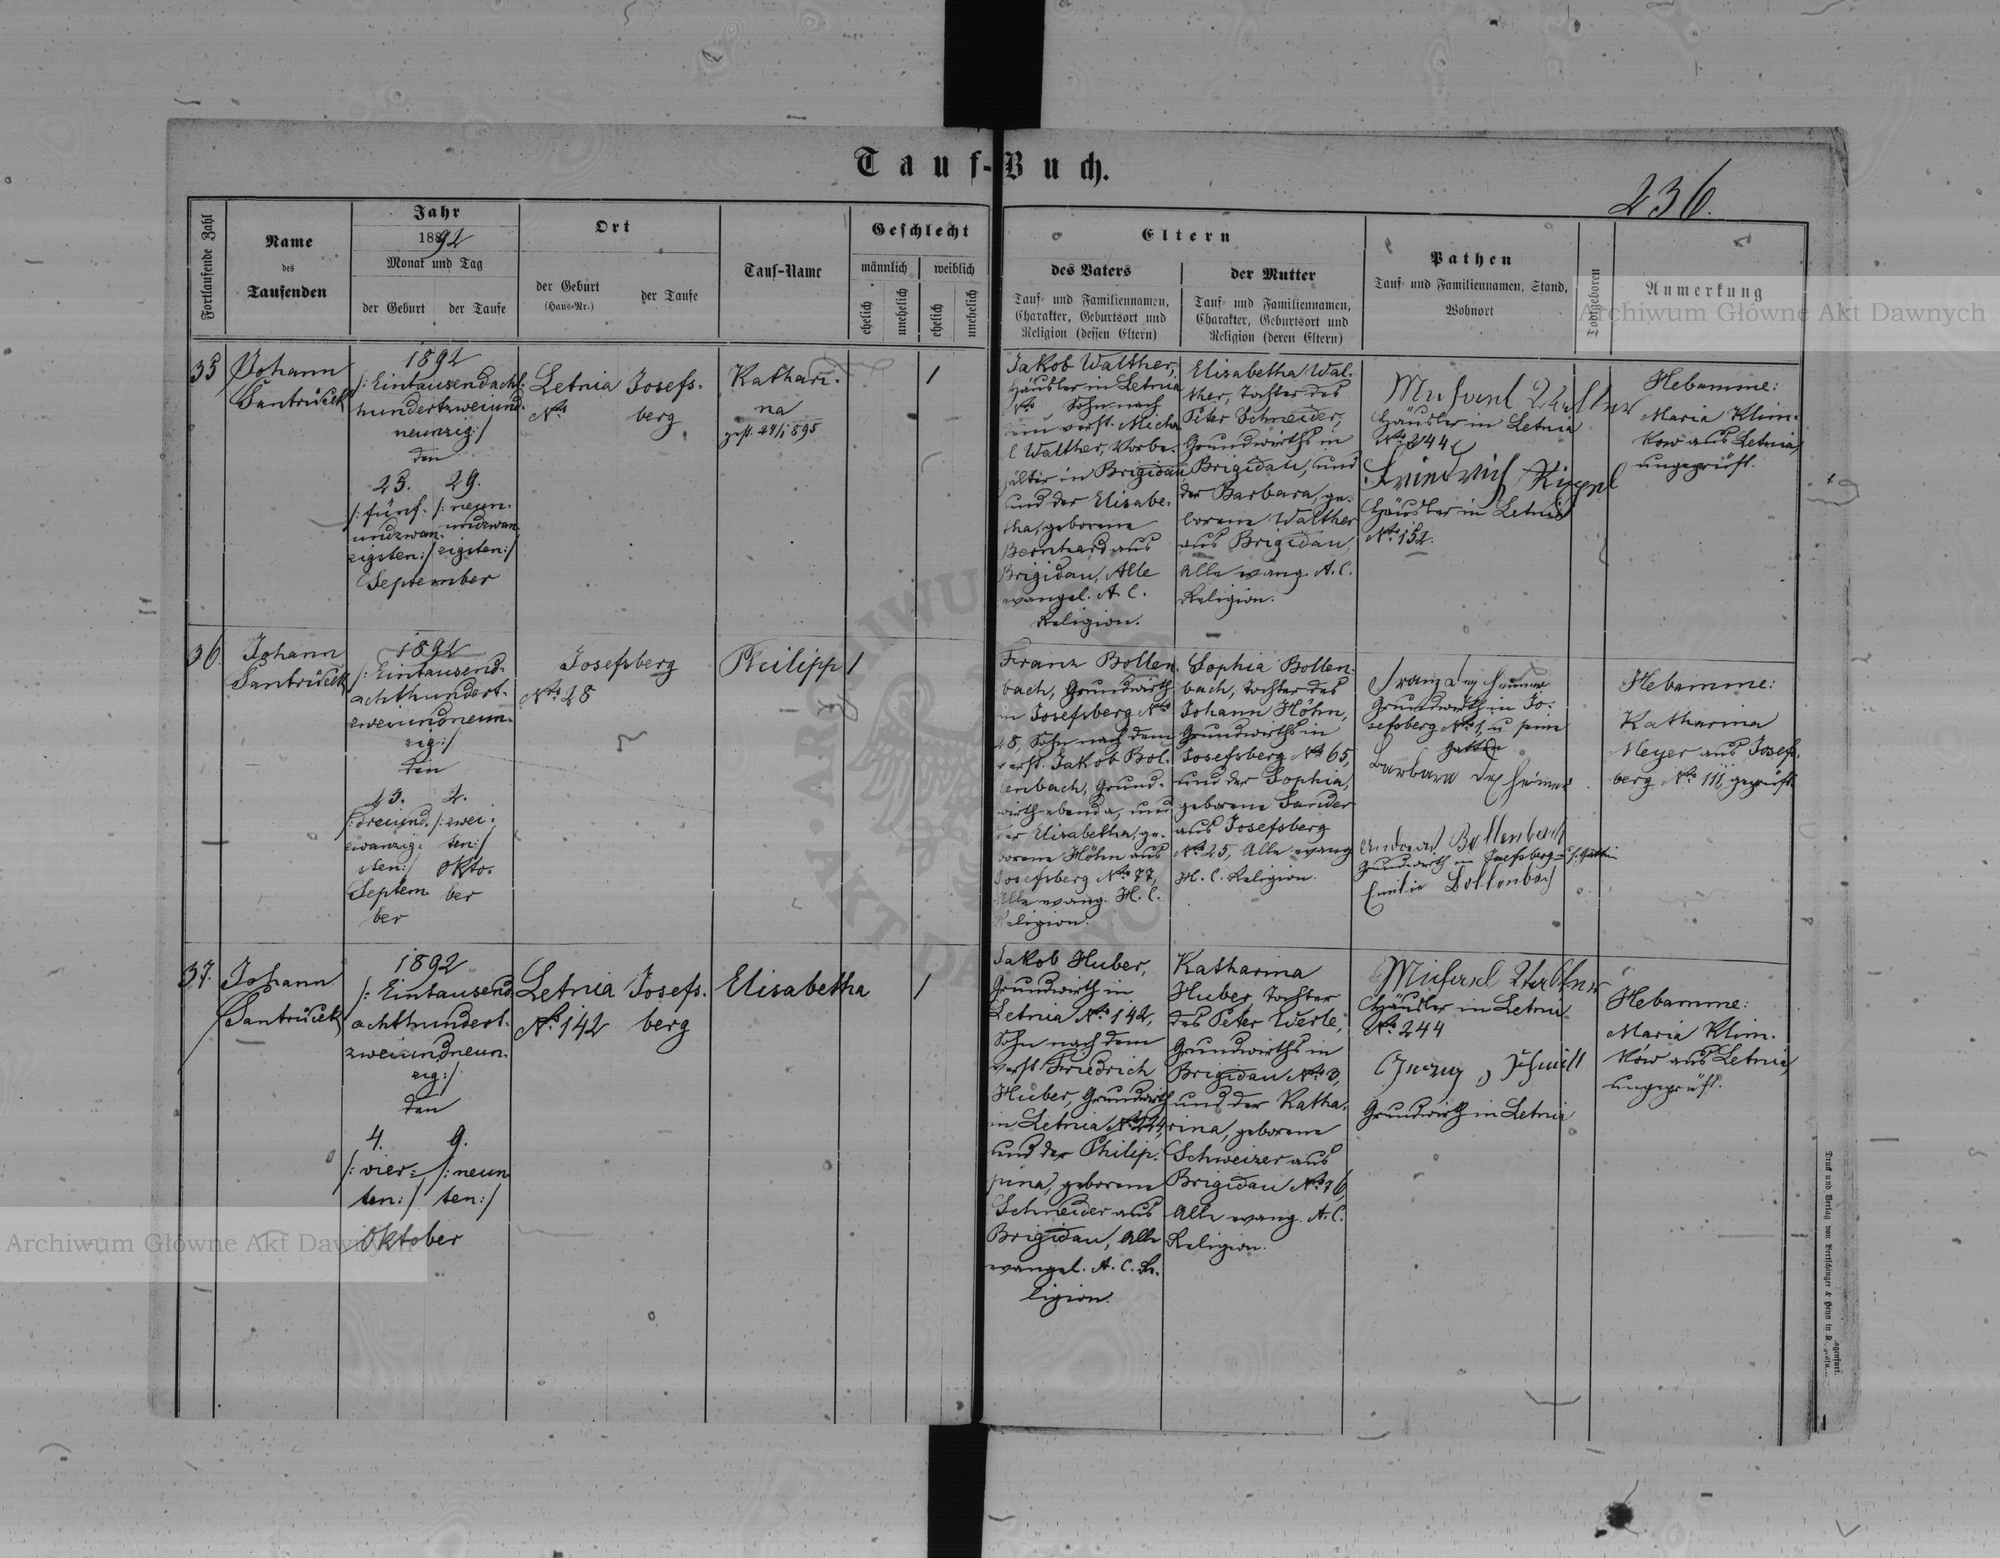 Tauf-Buch.
236.
Fortlaufende Zahl
Name
des
Taufenden
Jahr
1892
Monat und Tag
der Geburt
der Taufe
Ort
der Geburt
(Haus-Nr.)
der Taufe
Tauf-Name
Geschlecht
männlich
weiblich
ehelich
unehelich
ehelich
unehelich
Eltern
des Vaters
Tauf- und Familiennamen,
Charakter, Geburtsort und
Religion (dessen Eltern)
der Mutter
Tauf- und Familiennamen,
Charakter, Geburtsort und
Religion (deren Eltern)
Pathen
Tauf- und Familiennamen, Stand,
Wohnort
Todtgeboren
Anmerkung
35
Johann
Santrůček
1892
/: Eintausendacht-
hundertzweiund-
neunzig :/
den
25. 29.
/: fünf- /: neun-
undzwan- undzwan-
zigsten :/ zigsten :/
September
Letnia
No
Josefs-
berg
Kathari-
na
gest. 24/1 895
1
Jakob Walther,
Häusler in Letnia
No Sohn nach
dem verst. Micha
el Walther, Vorbe-
hälter in Brigidau
und der Elisabe-
tha, geborene
Bernhard aus
Brigidau, Alle
evangel. A. C.
Religion.
Elisabetha Wal-
ther, Tochter des
Peter Schneider,
Grundwirths in
Brigidau, und
der Barbara, ge-
borene Walther
aus Brigidau,
Alle evang. A. C.
Religion.
Michael Walther
Häusler in Letnia
No 244
Friedrich
Häusler in Letnia
No 152.
Hebamme:
Maria Klim-
kow aus Letnia,
ungeprüft.
36.
Johann
Santrůček
1892
/: Eintausend-
achthundert-
zweiundneun-
zig :/
den
23. 2.
/: dreiund- /: zwei-
zwanzig- ten :/
sten :/ Okto-
Septem ber
ber
Josefsberg
No 28
Philipp
1
Franz Bollen-
bach, Grundwirth
in Josefsberg No
28, Sohn nach dem
verst. Jakob Bol-
lenbach, Grund-
wirth ebenda, und
der Elisabetha, ge-
borene Höhn aus
Josefsberg No 77,
Alle evang. H. C.
Religion.
Sophia Bollen-
bach, Tochter des
Johann Höhn,
Grundwirths in
Josefsberg No 65,
und der Sophia,
geborene Sander
aus Josefsberg
No 25, Alle evang
H. C. Religion.
Franz Dexheimer
Grundwirth in Jo-
sefsberg No 1, u seine
Gattin
Barbara Dexheimer
Andreas Bollenbach
Grundwirth in Josefsberg u s. Gattin
Emilie Bollenbach
Hebamme:
Katharina
Meyer aus Josefs-
berg No 111, geprüft.
37.
Johann
Santrůček
1892
/: Eintausend
achthundert-
zweiundneun-
zig :/
den
4. 9.
/: vier- /: neun
ten :/ ten :/
Oktober
Letnia
No 142
Josefs-
berg
Elisabetha
1
Jakob Huber,
Grundwirth in
Letnia No 142,
Sohn nach dem
verst. Friedrich
Huber, Grundwirth
in Letnia No
und der Philip-
pina, geborene
Schneider aus
Brigidau, Alle
evangel. A. C. Re-
ligion.
Katharina
Huber, Tochter
des Peter Werle,
Grundwirths in
Brigidau No 3,
und der Katha-
rina, geborene
Schweizer aus
Brigidau No 76,
Alle evang. A. C.
Religion.
Michael Walther
Häusler in Letnia
No 244
Georg Schmidt
Grundwirth in Letnia
Hebamme:
Maria Klim-
ków aus Letnia,
ungeprüft.
Druck und Verlag von Bertschinger & Heyn in Klagenfurt.
Archiwum Główne Akt Dawnych
Archiwum Główne Akt Dawnych
ARCHIWUM
AKT DAWNYCH